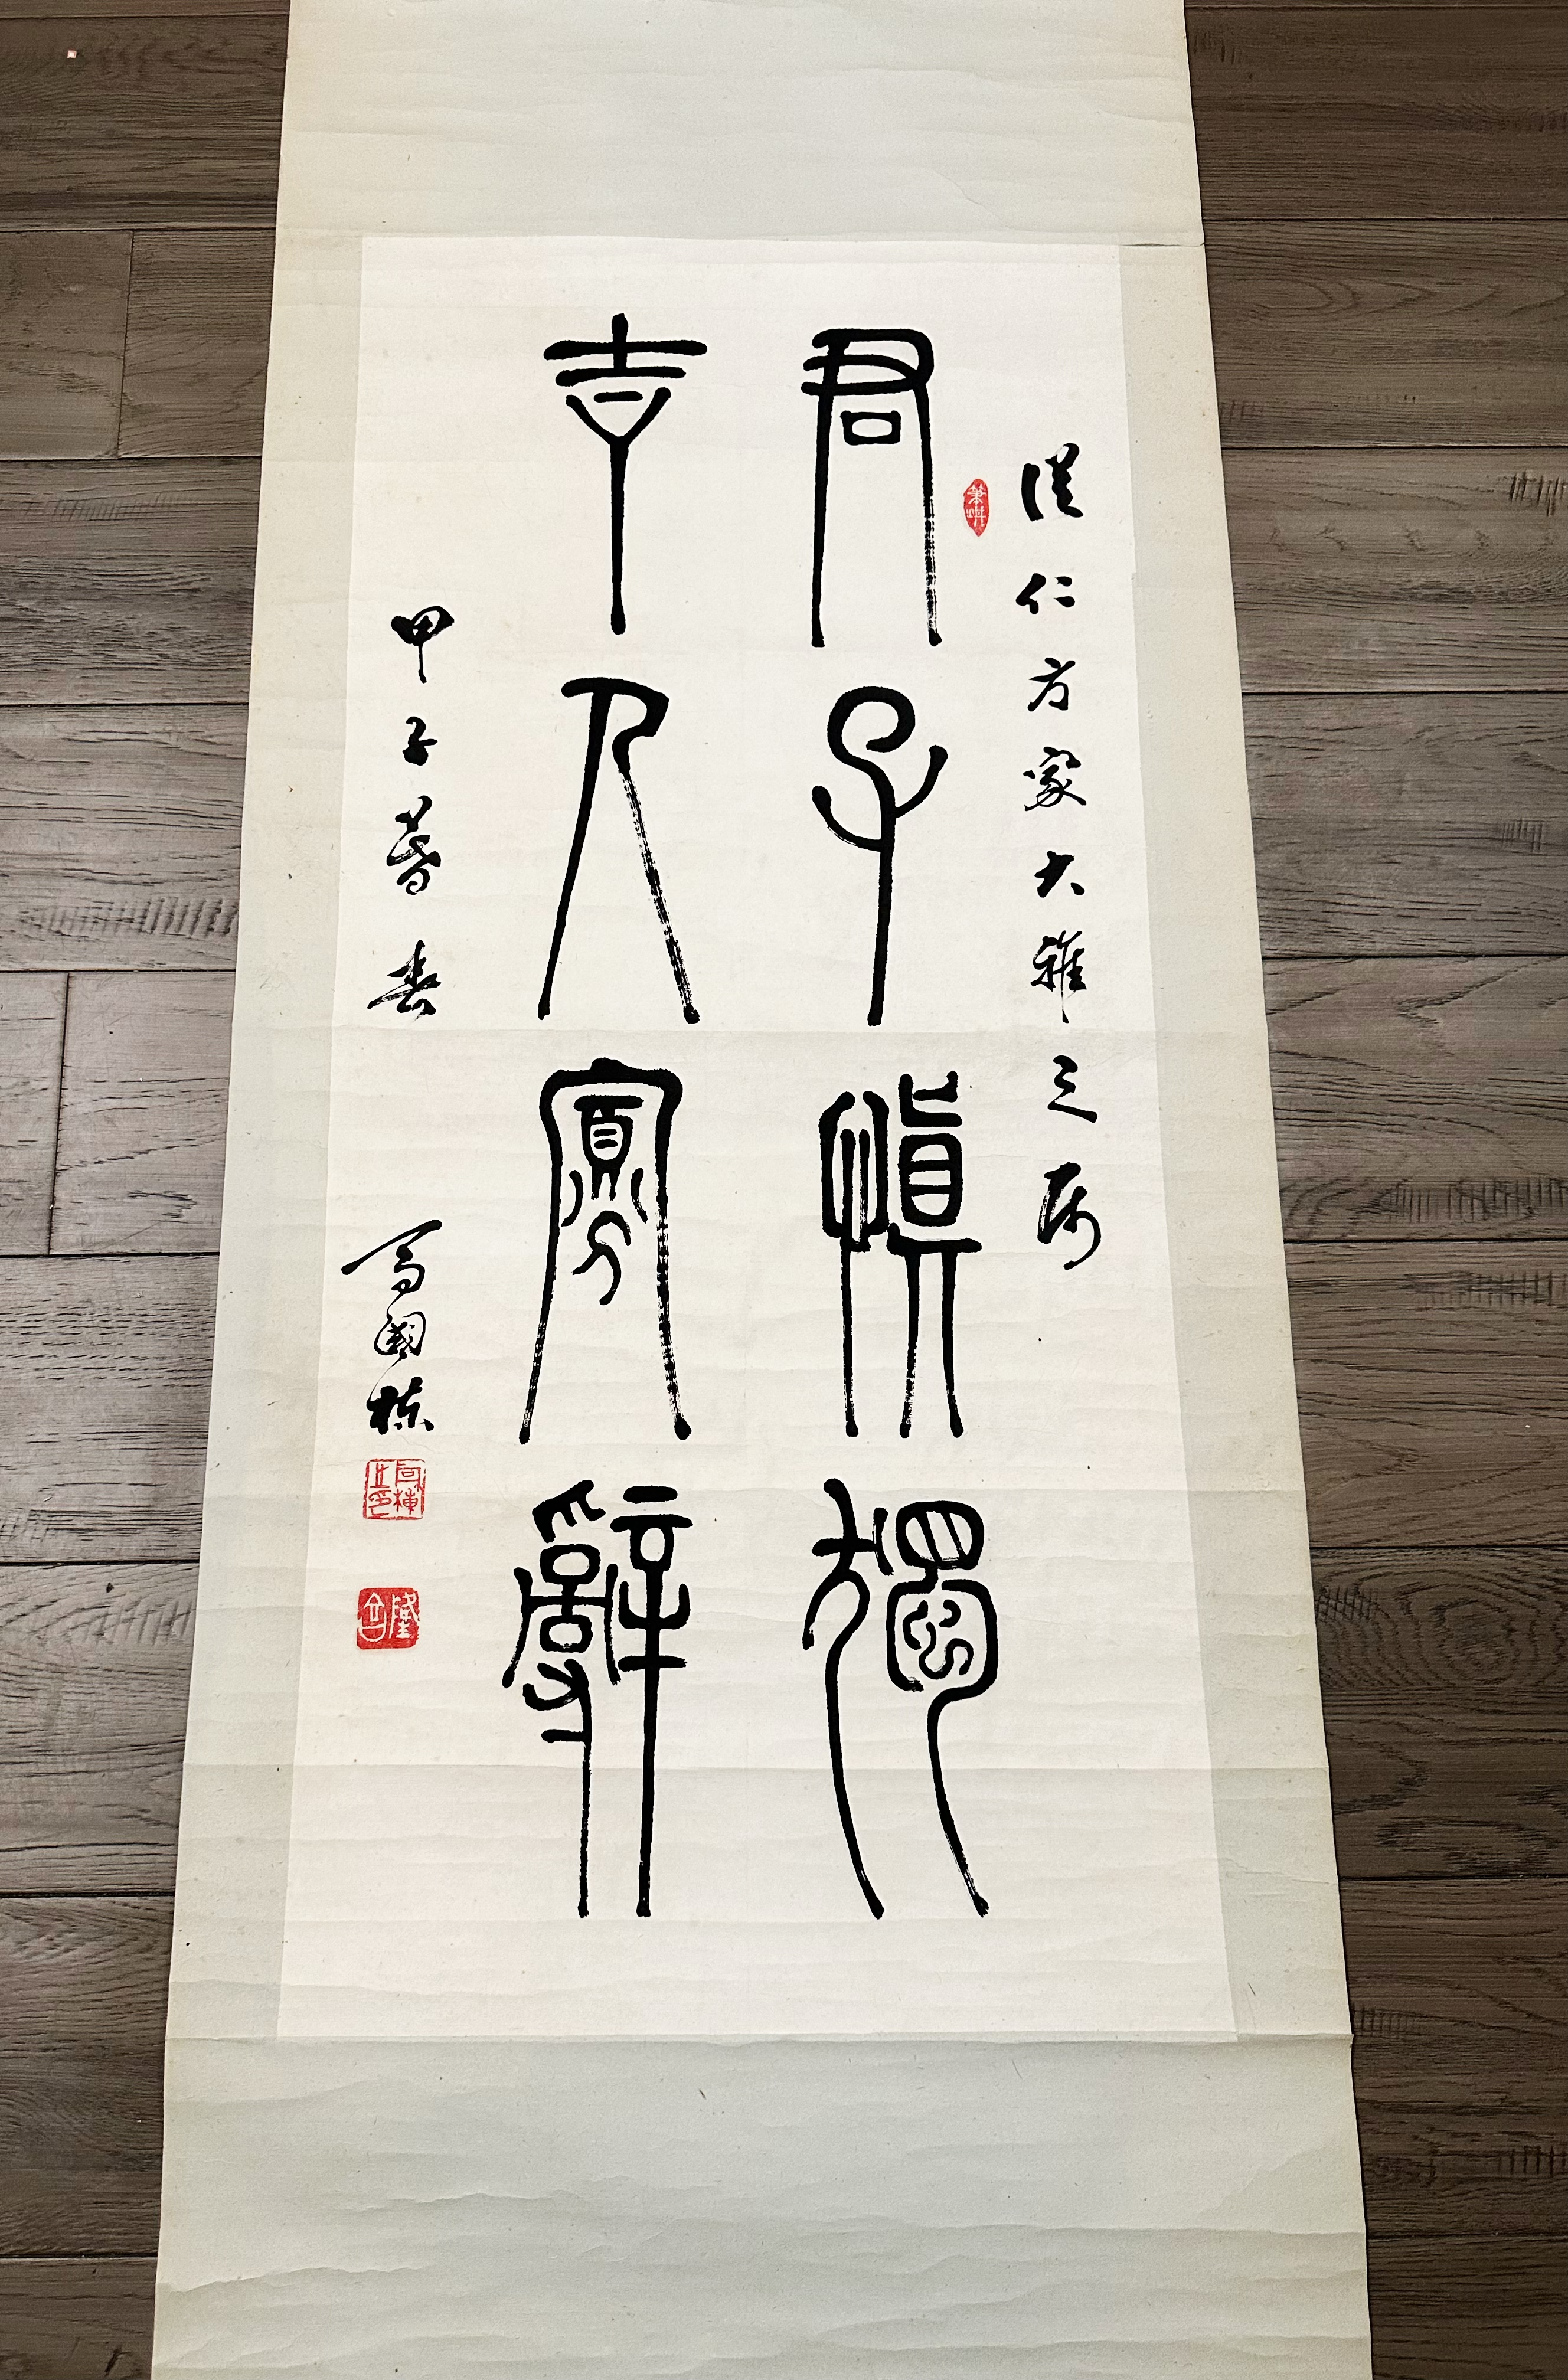 仁方家大雅之属
君子慎獨
吉人寡辭
甲子暮春
高國棟